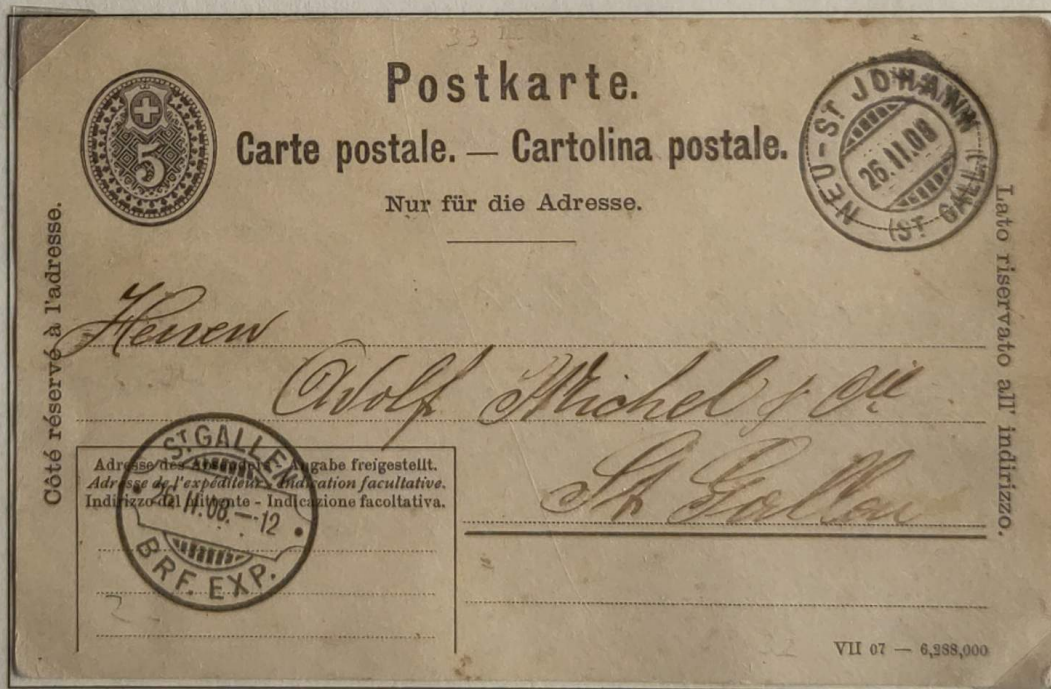 33
Postkarte.
Carte postale. — Cartolina postale.
Nur für die Adresse.
5
NEU-ST JOHANN
26.II.08
(ST GALL)
Côté réservé à l'adresse.
Lato riservato all' indirizzo.
Herren
Adolf Michel & Cie
St Gallen
Adresse des Absenders - Angabe freigestellt.
Adresse de l'expéditeur - Indication facultative.
Indirizzo del mittente - Indicazione facoltativa.
ST GALLEN
26.II.08.—12
BRF. EXP.
VII 07 — 6,288,000